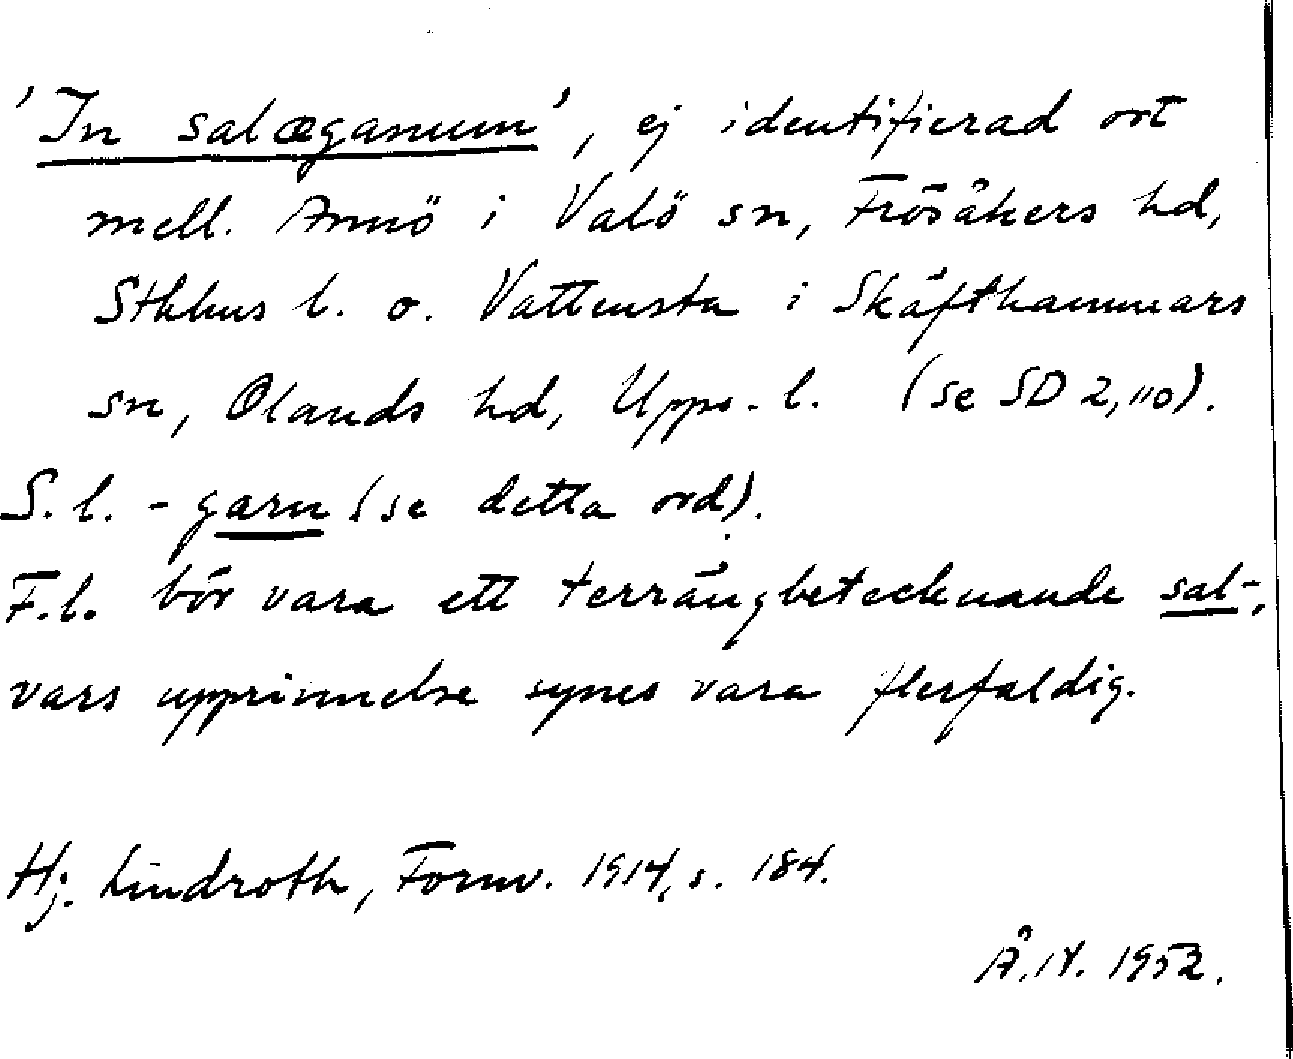 'In salæganum', ej identifierad ort
mell. Annö i Valö sn, Frösåkers hd,
Sthlms l. o. Vattensta i Skäfthammars
sn, Olands hd, Upps. l. (se SD 2,110).
S.l. -garn (se detta ord).
F.l. bör vara ett terrängbetecknande sal-,
vars upprinnelse synes vara flerfaldig.
Hj. Lindroth, Fornv. 1914, s. 184.
Å.N. 1952.